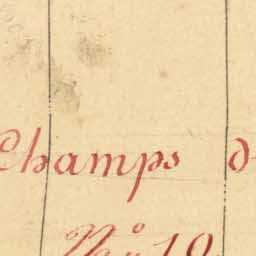 Champs d
No 10